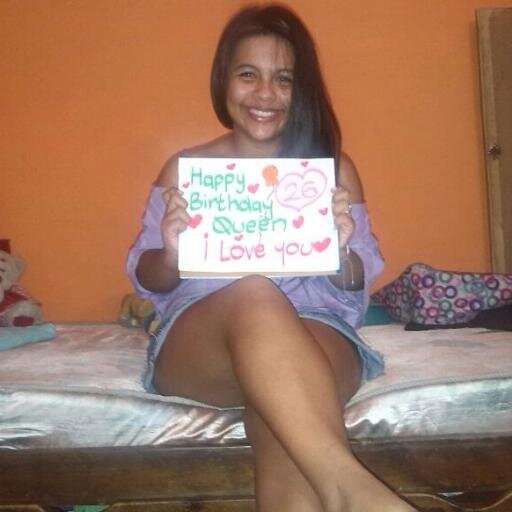 Happy
26
Birthday
Queen
i Love you